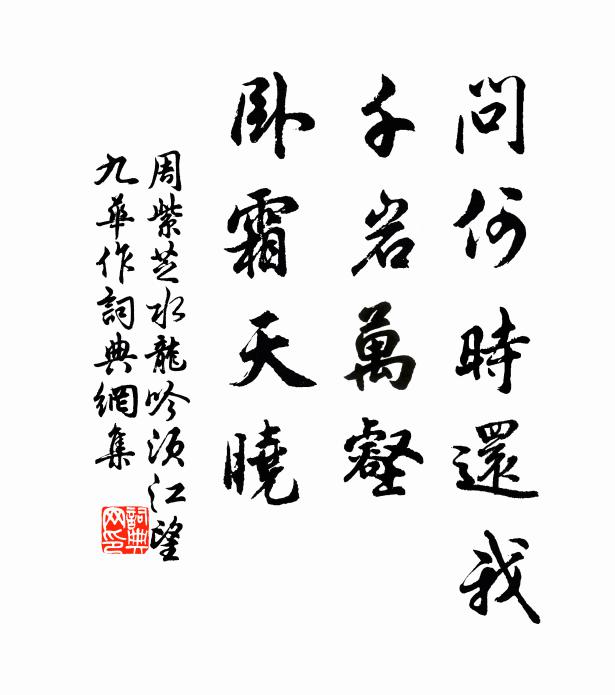 問何時還我
千岩萬壑
臥霜天曉
周紫芝水龍吟須江望
九華作詞典網集
詞典
网印